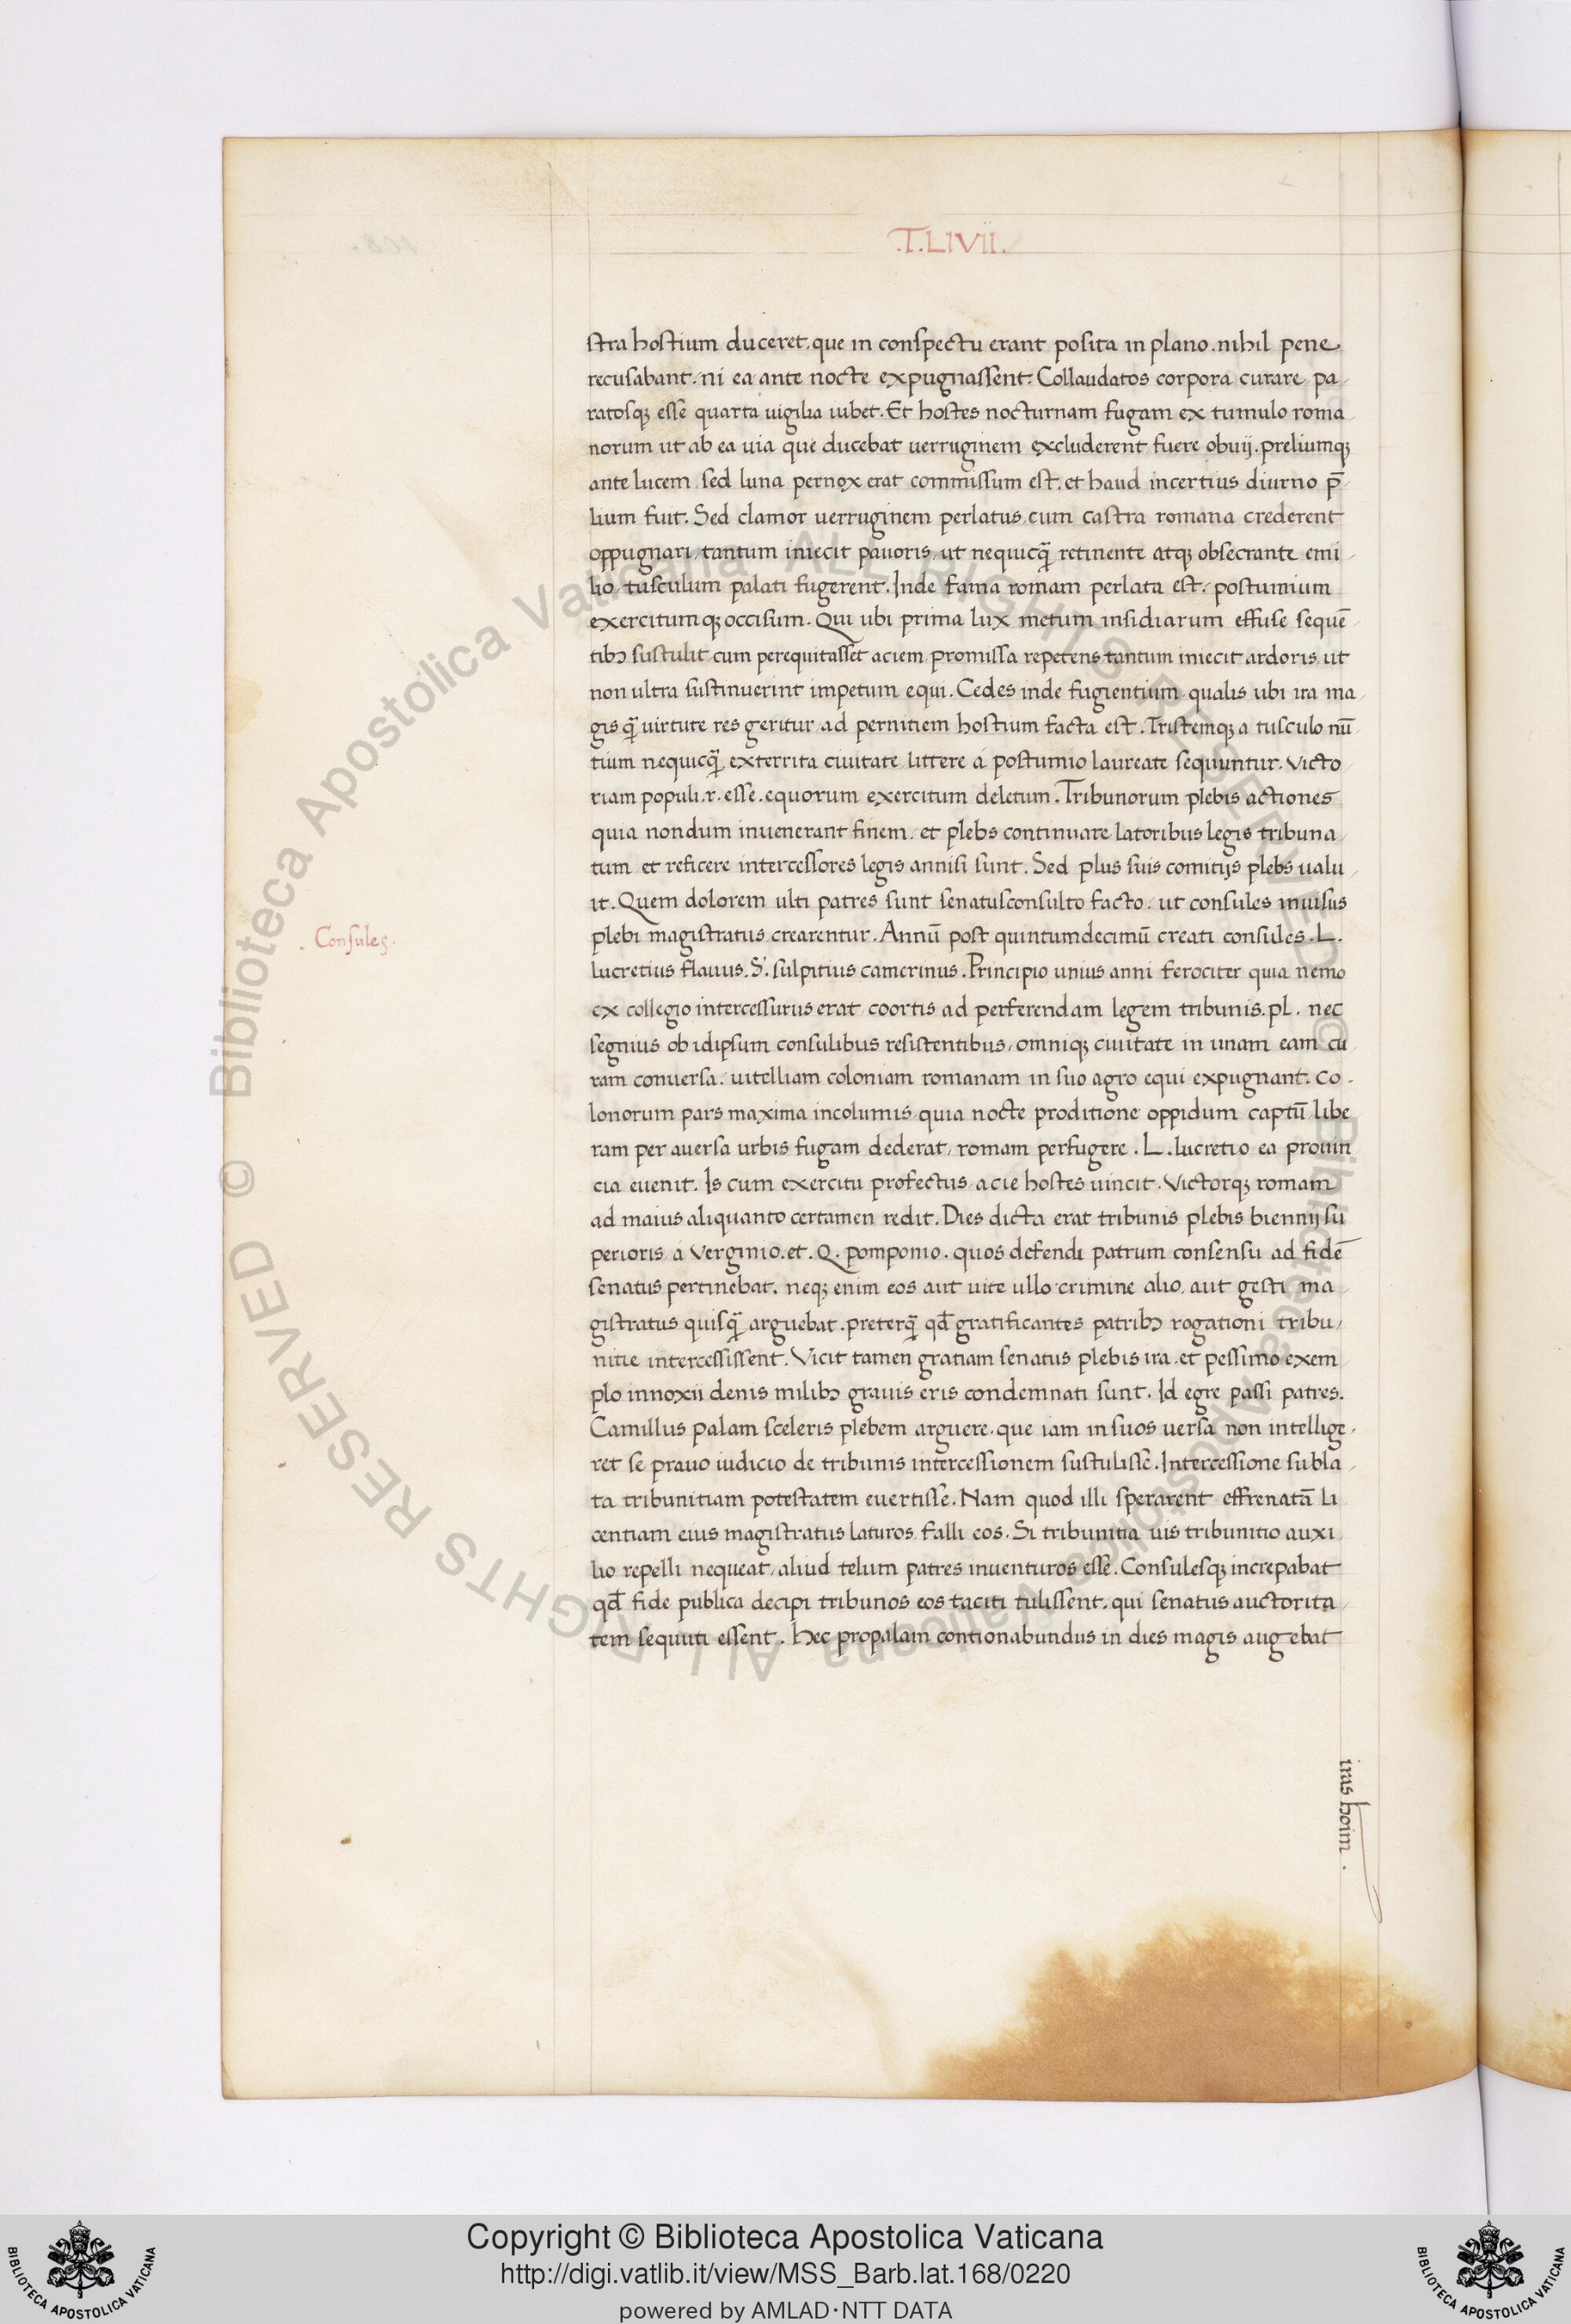 .T.LIVII.
stra hostium duceret, que in conspectu erant posita in plano. nihil pene
recusabant. ni ea ante nocte expugnassent. Collaudatos corpora curare pa
ratosq; esse quarta uigilia iubet. Et hostes nocturnam fugam ex tumulo roma
norum ut ab ea uia que ducebat uerruginem excluderent fuere obuij. preliumq;
ante lucem, sed luna pernox erat commissum est. et haud incertius diurno p̄
lium fuit. Sed clamor uerruginem perlatus, cum castra romana crederent
oppugnari, tantum iniecit pauoris, ut nequicq̃ retinente atq; obsecrante emi
lio, tusculum palati fugerent. Inde fama romam perlata est. postumium
exercitumq; occisum. Qui ubi prima lux metum insidiarum effuse sequē
tibꝫ sustulit, cum perequitasset aciem promissa repetens, tantum iniecit ardoris, ut
non ultra sustinuerint impetum equi. Cedes inde fugientium, qualis ubi ira ma
gis q̃ uirtute res geritur, ad pernitiem hostium facta est. Tristemq; a tusculo nū
tium nequicq̃ exterrita ciuitate, littere a postumio laureate sequuntur. Victo
riam populi .r. esse. equorum exercitum deletum. Tribunorum plebis actiones
quia nondum inuenerant finem. et plebs continuare latoribus legis tribuna
tum et reficere intercessores legis annisi sunt. Sed plus suis comitijs plebs ualu
it. Quem dolorem ulti patres sunt senatusconsulto facto. ut consules inuisus
plebi magistratus crearentur. Annū post quintumdecimū creati consules. L.
Consules.
lucretius flauus. S'. sulpitius camerinus. Principio unius anni ferociter quia nemo
ex collegio intercessurus erat coortis ad perferendam legem tribunis. pl. nec
segnius ob idipsum consulibus resistentibus, omniq; ciuitate in unam eam cu
ram conuersa. uitelliam coloniam romanam in suo agro equi expugnant. Co
lonorum pars maxima incolumis quia nocte proditione oppidum captū libe
ram per auersa urbis fugam dederat, romam perfugere. L. lucretio ea prouin
cia euenit. Is cum exercitu profectus acie hostes uincit. Victorq; romam
ad maius aliquanto certamen redit. Dies dicta erat tribunis plebis biennij su
perioris a Verginio. et. Q. pomponio. quos defendi patrum consensu ad fidē
senatus pertinebat. neq; enim eos aut uite ullo crimine alio, aut gesti ma
gistratus quisq̃ arguebat. preterq̃ qđ gratificantes patribꝫ rogationi tribu
nitie intercessissent. Vicit tamen gratiam senatus plebis ira. et pessimo exem
plo innoxii denis milibꝫ grauis eris condemnati sunt. Id egre passi patres.
Camillus palam sceleris plebem arguere. que iam in suos uersa non intellige
ret se prauo iudicio de tribunis intercessionem sustulisse. Intercessione subla
ta tribunitiam potestatem euertisse. Nam quod illi sperarent effrenatā li
centiam eius magistratus laturos, falli eos. Si tribunitia uis tribunitio auxi
lio repelli nequeat, aliud telum patres inuenturos esse. Consulesq; increpabat
qđ fide publica decipi tribunos eos taciti tulissent. qui senatus auctorita
tem sequuti essent. Hec propalam contionabundus in dies magis augebat
iras hoim.
© Biblioteca Apostolica Vaticana ALL RIGHTS RESERVED © Biblioteca Apostolica Vaticana ALL RIGHTS RESERVED
BIBLIOTECA APOSTOLICA VATICANA
Copyright © Biblioteca Apostolica Vaticana
http://digi.vatlib.it/view/MSS_Barb.lat.168/0220
powered by AMLAD·NTT DATA
BIBLIOTECA APOSTOLICA VATICANA